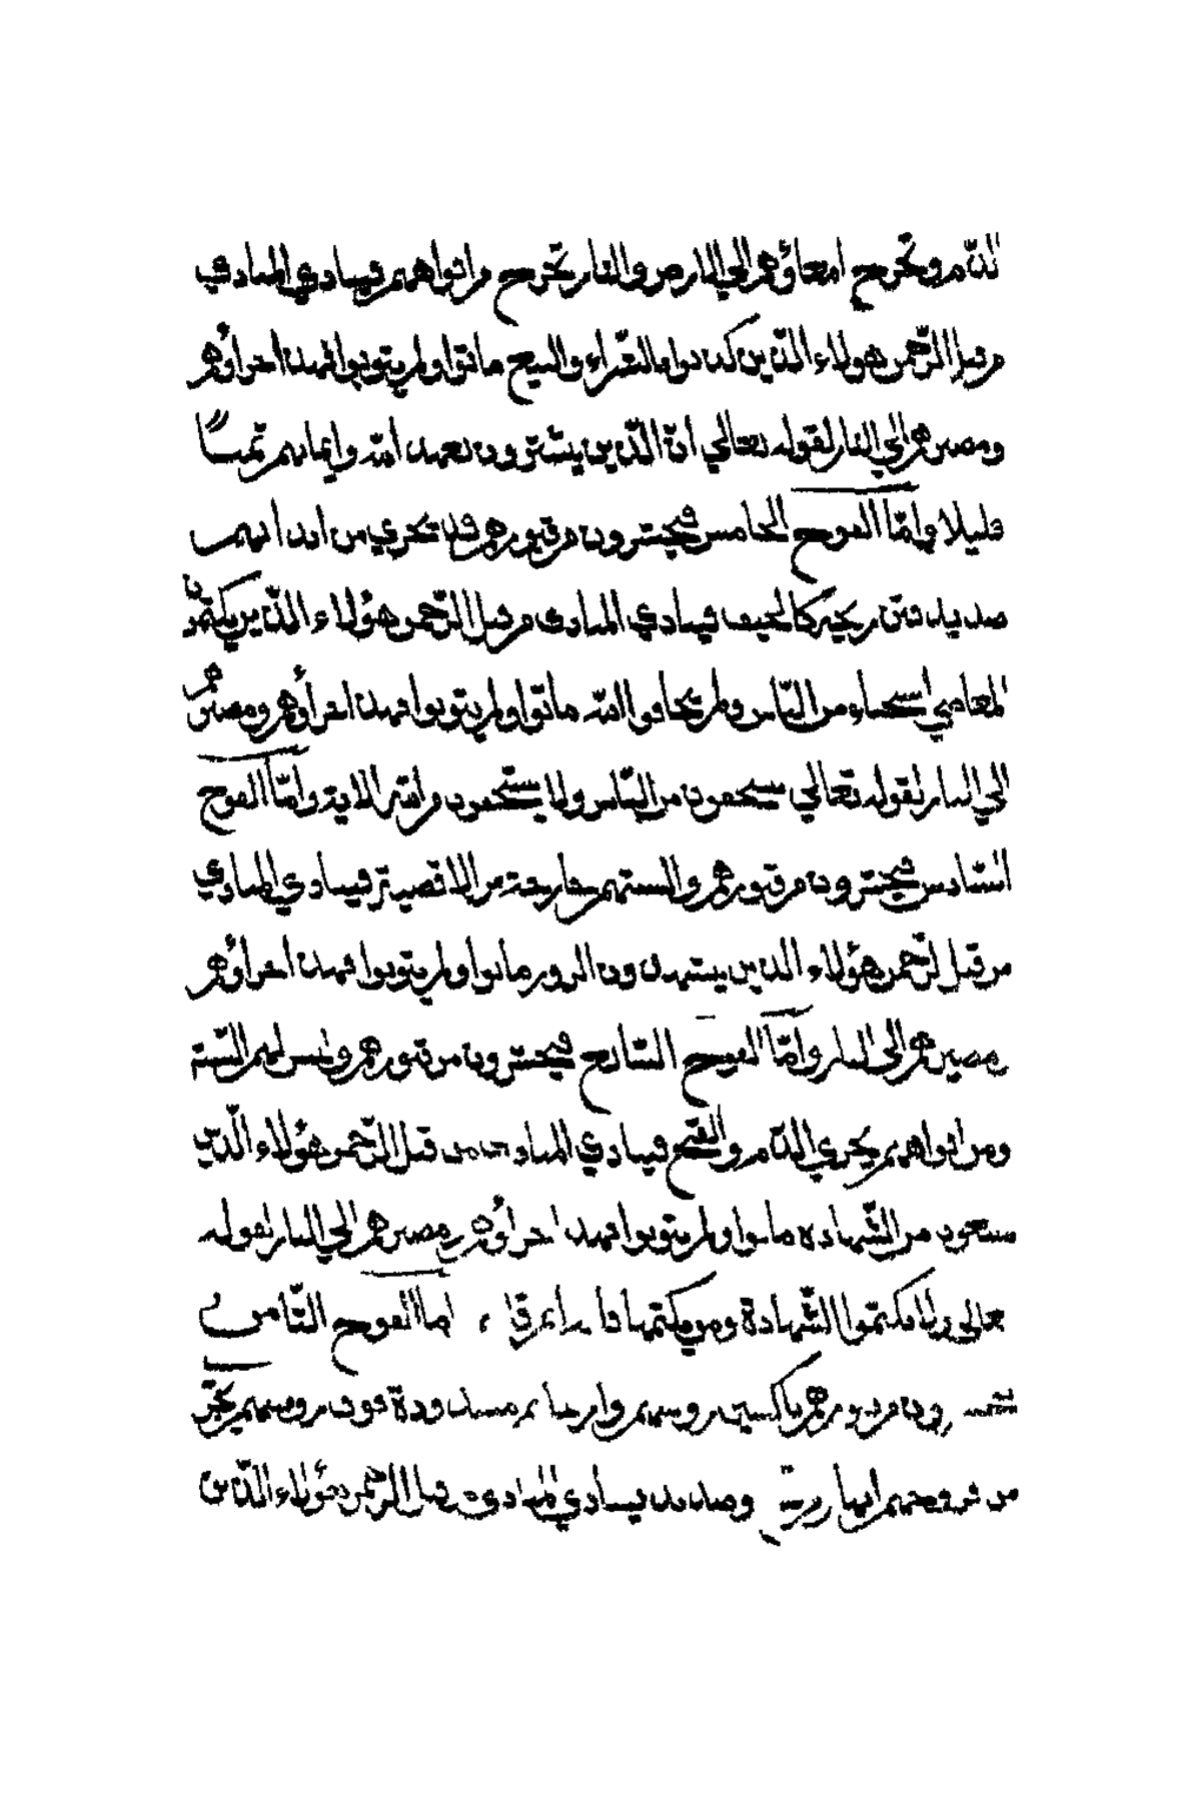 الدّم وتخرج امعاؤهم الي الارض والنار تخرج من افواههم فينادي المنادي
من قبل الرّحمن هولاء الذّين كذبوا بالشّراء والبيع ماتوا ولم يتوبوا فهذا جزاؤهم
ومصيرهم الي النار لقوله تعالي انّ الذّين يشترون بعهد الله وايمانهم ثمنًا
قليلا وامّا الفوج الخامس فيحشرون من قبورهم قد تجري من ابدانهم
صديد نتن ريحه كالجيف فينادي المنادي من قبل الرّحمن هؤلاء الذّين يكتمون
المعاصي استحياء من النّاس ولم يخافوا اللّه ماتوا ولم يتوبوا فهذا جزاؤهم ومصيرهم
الي النار لقوله تعالي يستخفون من النّاس ولا يستخفون من الله الاية وامّا الفوج
السّادس فيحشرون من قبورهم والسنتهم خارجة من الاقصيتهم فينادي المنادي
من قبل الرّحمن هؤلاء الذين يشهدون الزور ماتوا ولم يتوبوا فهذا جزاؤهم
ومصيرهم الي النار وامّا الفوج السّابع فيحشرون من قبورهم وليس لهم السّنة
ومن افواههم يجري الدّم والقيح فينادي المنادي من قبل الرّحمن هؤلاء الذّين
يمنعون من الشّهادة ماتوا ولم يتوبوا فهذا جزاؤهم ومصيرهم الي النار لقوله
تعالي ولا تكتموا الشّهادة ومن يكتمها فانه اما الفوج الثّامن
فيحشرون من قبورهم ناكسين روسهم وارجلهم مسدودة فوق روسهم يجري
من فروجهم انهار وصديد فينادي المنادي من قبل الرّحمن هؤلاء الذّين